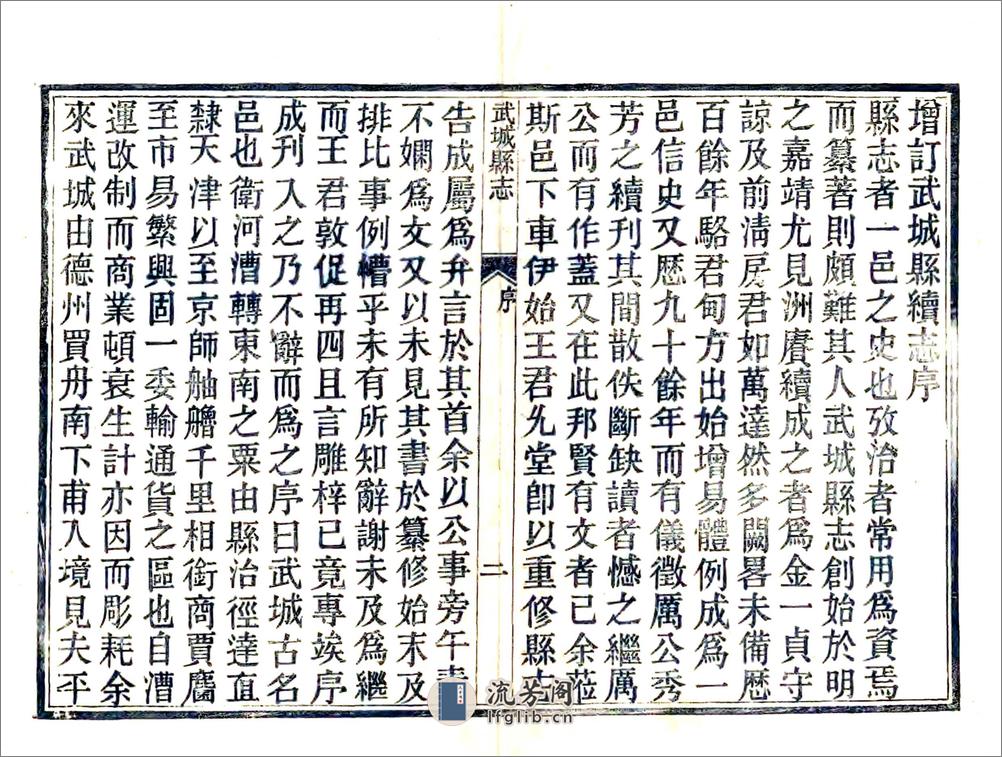 增訂武城縣續志序
縣志者一邑之史也攷治者常用爲資焉
而纂著則頗難其人武城縣志創始於明
之嘉靖尤見洲賡續成之者爲金一貞守
諒及前淸房君如萬達然多闕畧未備歷
百餘年駱君甸方出始增易體例成爲一
邑信史又歷九十餘年而有儀徵厲公秀
芳之續刊其間散佚斷缺讀者憾之繼厲
公而有作蓋又在此邦賢有文者已余莅
斯邑下車伊始王君允堂卽以重修縣志
武城縣志
序
二
告成屬爲弁言於其首余以公事旁午素
不嫻爲文又以未見其書於纂修始末及
排比事例懵乎未有所知辭謝未及爲繼
而王君敦促再四且言雕梓已竟專竢序
成刊入之乃不辭而爲之序曰武城古名
邑也衛河漕轉東南之粟由縣治徑達直
隸天津以至京師舳艫千里相銜商賈麕
至市易繁興固一委輸通貨之區也自漕
運改制而商業頓衰生計亦因而彫耗余
來武城由德州買舟南下甫入境見夫平
流芳阁
lfglib.cn